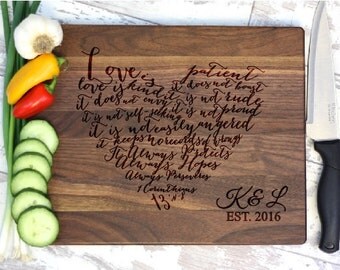 Love is patient
love is kind it does not boast
it does not envy it is not rude
it is not self-seeking it is not proud
it is not easily angered
it keeps no records of wrongs
It Always Protects
Always Hopes
Always Perseveres
1 Corinthians
13
K & L
EST. 2016